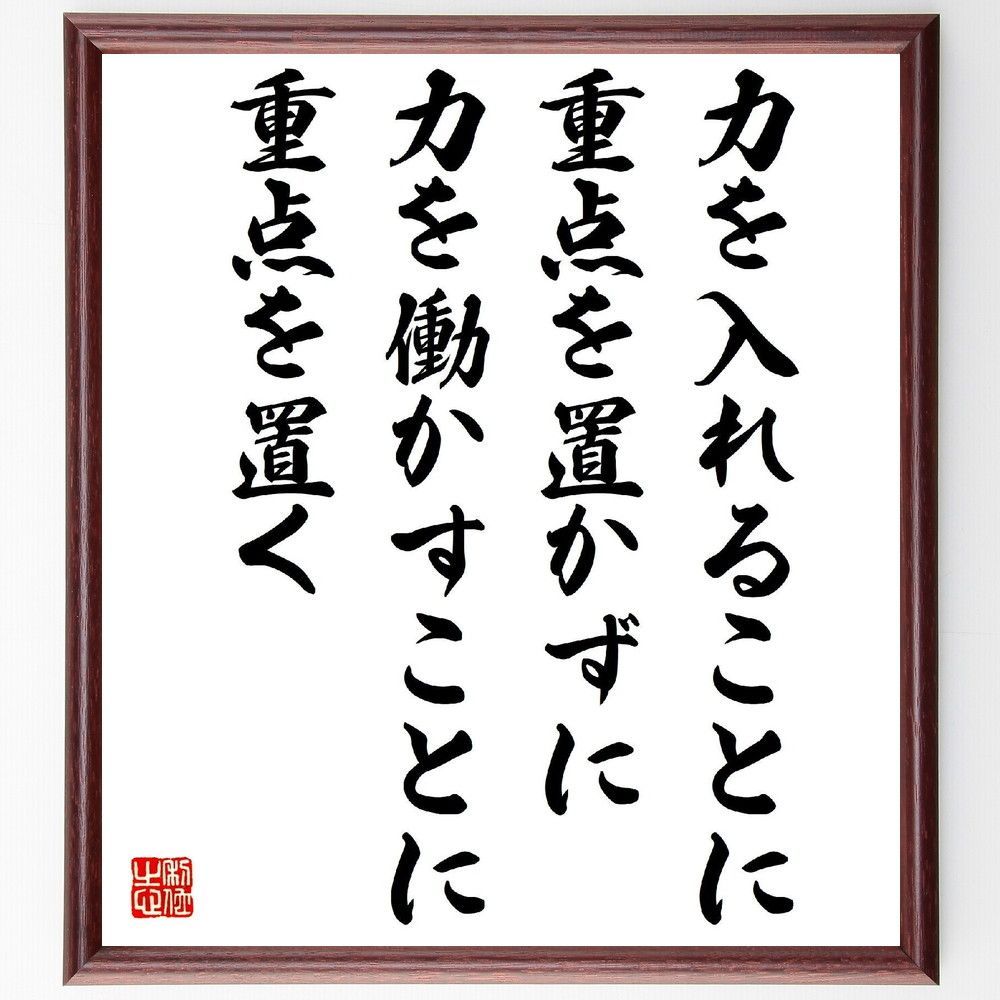 力を入れることに
重点を置かずに
力を働かすことに
重点を置く